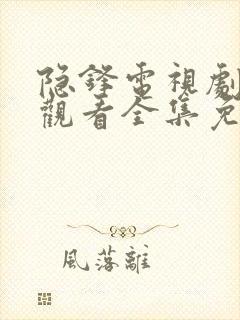 隐鋒電視劇
觀看全集免
風落離